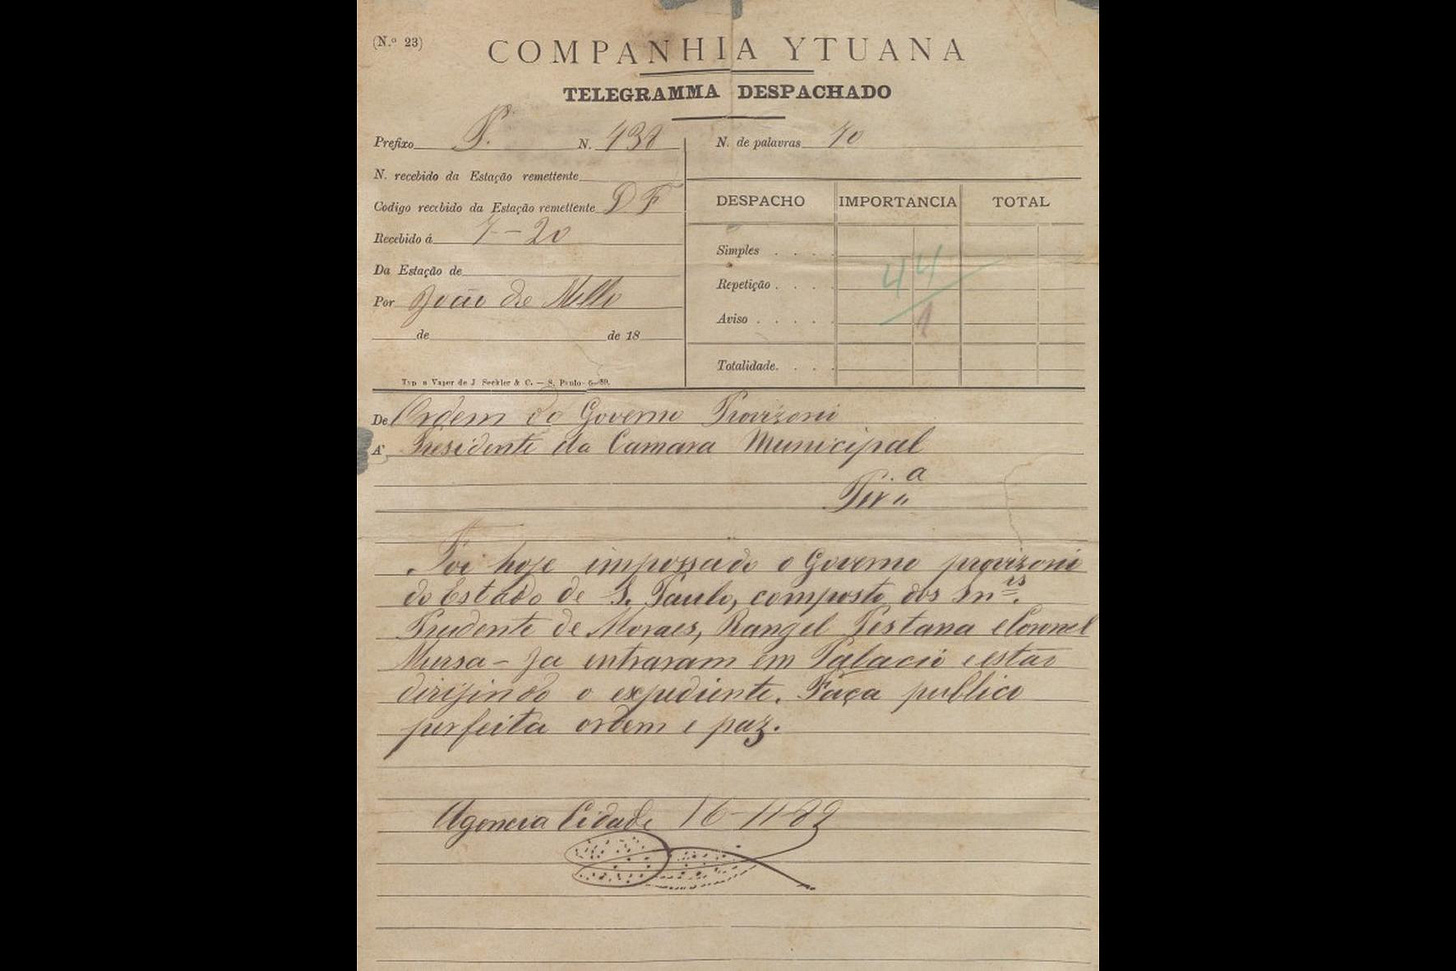 (N.º 23)
COMPANHIA YTUANA
TELEGRAMMA DESPACHADO
Prefixo P. N. 431
N. recebido da Estação remettente
Codigo recebido da Estação remettente D F
Recebido á 7-20
Da Estação de
Por João de Mello
de de 18
Typ. a Vapor de J. Seckler & C. — S. Paulo 6-89.
N. de palavras 40
DESPACHO IMPORTANCIA TOTAL
Simples . . .
Repetição . . . .
Aviso . . . . .
Totalidade. . . .
44
De Ordem do Governo Provizori
A' Presidente da Camara Municipal
Pir.ª
Foi hoje impossado o Governo provizori
do Estado de S. Paulo, composto dos Snres.
Prudente de Moraes, Rangel Pestana e Coronel
Mursa - Ja entraram em Palacio e estão
dirijindo o expediente. Faça publico
perfeita ordem e paz.
Agencia Cidade 16-11-89